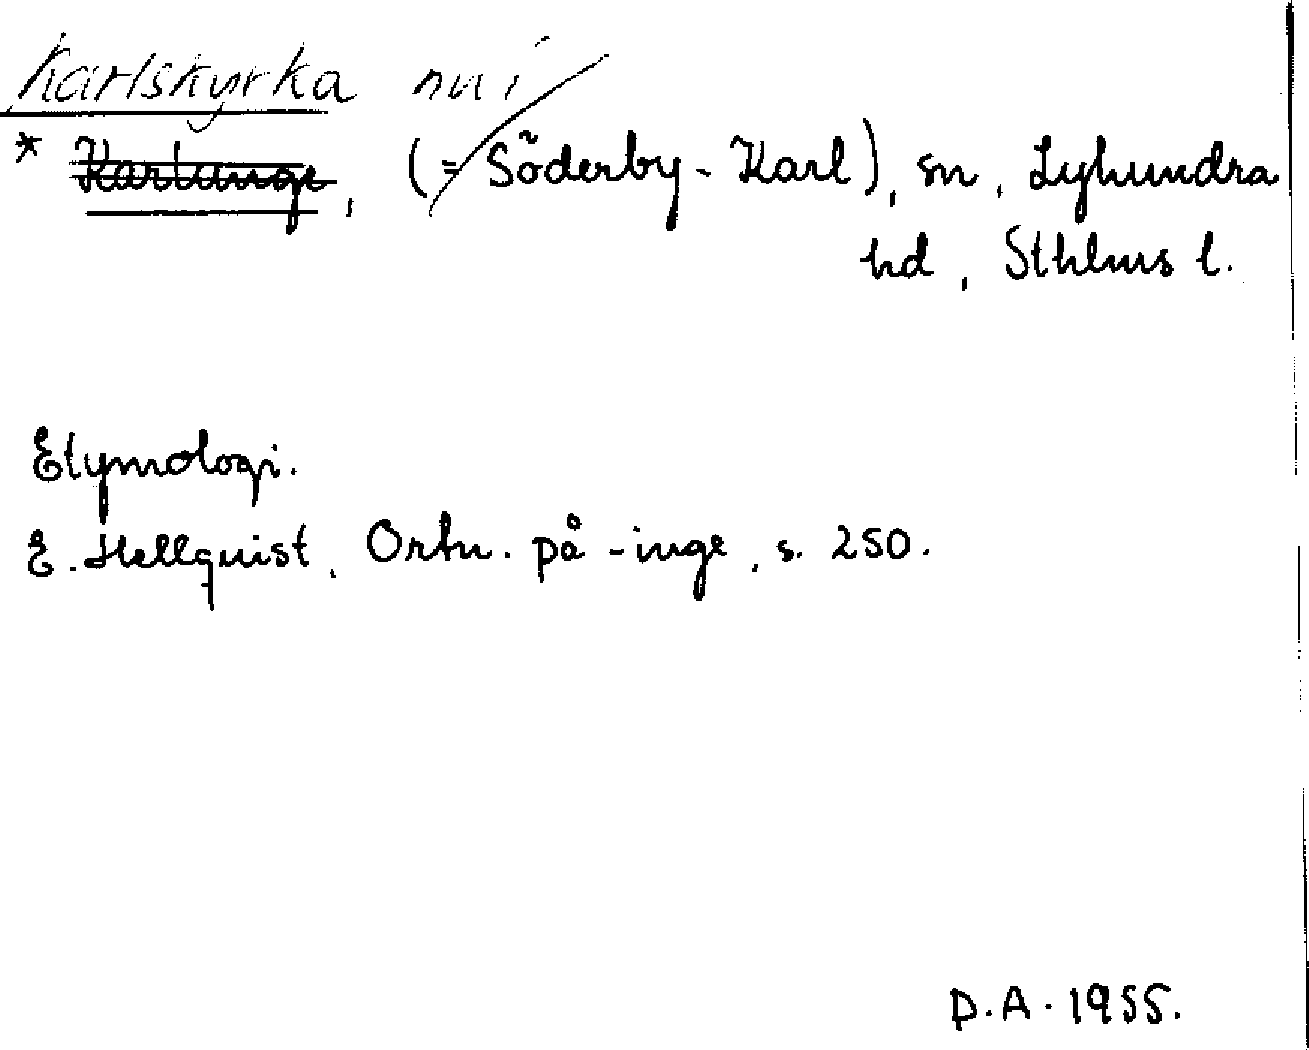 Karlskyrka nu i
* Karlunge, (= Söderby-Karl), sn, Lyhundra
hd, Sthlms l.
Etymologi.
E. Hellquist, Ortn. på -inge, s. 250.
D.A. 1955.